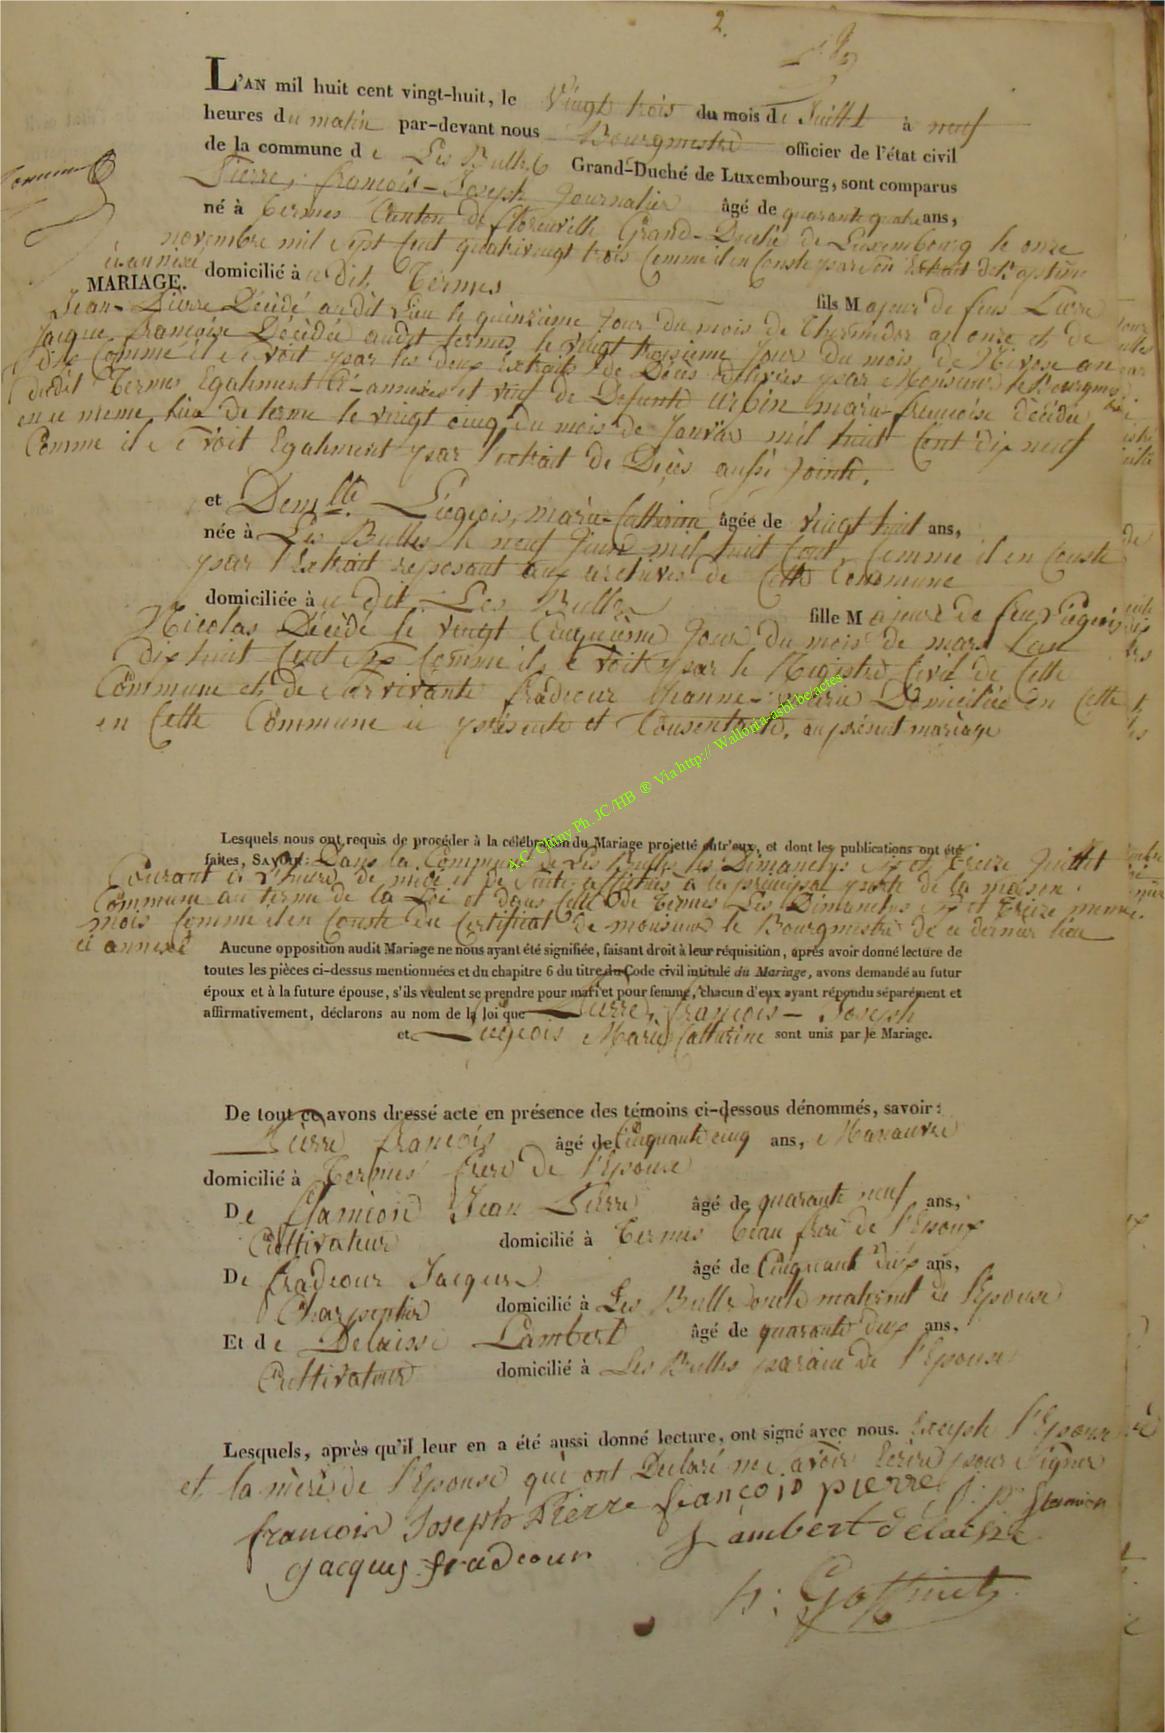 2.
L'AN mil huit cent vingt-huit, le Vingt trois du mois de Juillet à neuf
heures du matin par-devant nous Bourgmestre officier de l'état civil
de la commune de Les Bulles Grand-Duché de Luxembourg, sont comparus
Pierre, françois-Joseph Journalier âgé de quarante quatre ans,
né à Termes Canton de florenville Grand-Duché de Luxembourg le onze
novembre mil sept Cent quatrevingt trois Comme il en Conste par son Extrait de Baptême
ci annexé
MARIAGE.
domicilié à u dit Termes fils Majeur de feus Pierre
Jean-Pierre Décédé audit Lieu le quinzième Jour du mois de Thermidor an onze et de
Jacque françoise Décédée audit termes le vingt troisieme Jour du mois de Nivose an
dix Comme il se voit par les deux Extraits de Décès délivrés par Monsieur le Bourgmestre
dudit Termes Egalement Ci-annexés et veuf de Defunte Urbin marie françoise décédée
en ce meme lieu de terme le vingt cinq du mois de Janvier mil huit Cent dix neuf
Comme il se voit Egalement par l'extrait de Décès aussi Joint.
et Demlle Liégeois, marie-Catherine âgée de vingt huit ans,
née à Les Bulles le neuf Juin mil huit Cent, Comme il en Conste
par l'Extrait reposant aux archives de Cette Commune
domiciliée à u dit Les Bulles fille Majeure de feu Liégeois
Nicolas Décédé le vingt Cinquième Jour du mois de mars L'an
dix huit Cent six Comme il se voit par le Registre Civil de Cette
Commune et de survivante fradcour Jeanne-Marie Domiciliée en Cette
en Cette Commune ci présente et Consentante, au présent mariage
A.C. Chiny Ph. JC/HB ® Via http:// Wallonia-asbl.be/actes
Lesquels nous ont requis de procéder à la célébration du Mariage projetté entr'eux, et dont les publications ont été
faites, SAVOIR: Dans la Commune de Les Bulles les Dimanches six et treize Juillet
Courant à l'heure de midi et de suite affichées à la principal porte de la maison
Commune au terme de la Loi et dans Celle de Termes Les Dimanches six et treize meme
mois Comme il en Conste du Certificat de monsieur le Bourgmestre de ce dernier lieu
ci annexé
Aucune opposition audit Mariage ne nous ayant été signifiée, faisant droit à leur réquisition, après avoir donné lecture de
toutes les pièces ci-dessus mentionnées et du chapitre 6 du titre du Code civil intitulé du Mariage, avons demandé au futur
époux et à la future épouse, s'ils veulent se prendre pour mari et pour femme, chacun d'eux ayant répondu séparément et
affirmativement, déclarons au nom de la loi que Pierre, françois-Joseph
et Liegeois Marie Catherine sont unis par le Mariage.
De tout ce avons dressé acte en présence des témoins ci-dessous dénommés, savoir:
Pierre françois âgé de Cinquante cinq ans, Manœuvre
domicilié à Termes frere de l'Epoux
De Slamion Jean Pierre âgé de quarante neuf ans,
Cultivateur domicilié à Termes beau frere de l'Epoux
De fradcour Jacques âgé de Cinquante dix ans,
Charpentier domicilié à Les Bulles oncle maternel de l'Epouse
Et de Delaisse Lambert âgé de quarante dix ans,
Cultivateur domicilié à Les Bulles parain de l'Epouse
Lesquels, après qu'il leur en a été aussi donné lecture, ont signé avec nous. Excepté l'Epouse
et la mère de l'Epouse qui ont Déclaré ne savoir Ecrire pour signer
francois Joseph Pierre françois pierre J: P: Slamion
Jacques fradcour Lambert delaisse
h: Goffinet